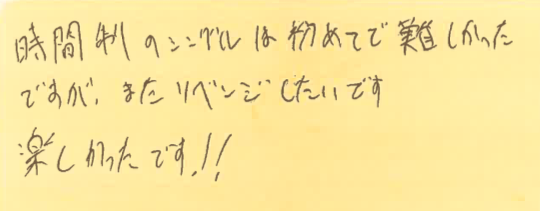 時間制のシングルは初めてで難しかった
ですが、またリベンジしたいです
楽しかったです!!